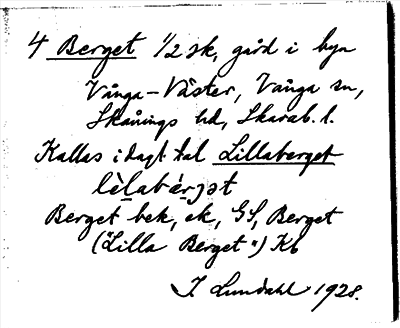 4 Berget 1/2 sk, gård i byn
Vånga-Väster, Vånga sn,
Skånings hd, Skarab. l.
Kallas i dagl. tal Lillaberget
lèlabǽrjət
Berget bek, ek, GS, Berget
("Lilla Berget") Kb
I Lundahl 1928.